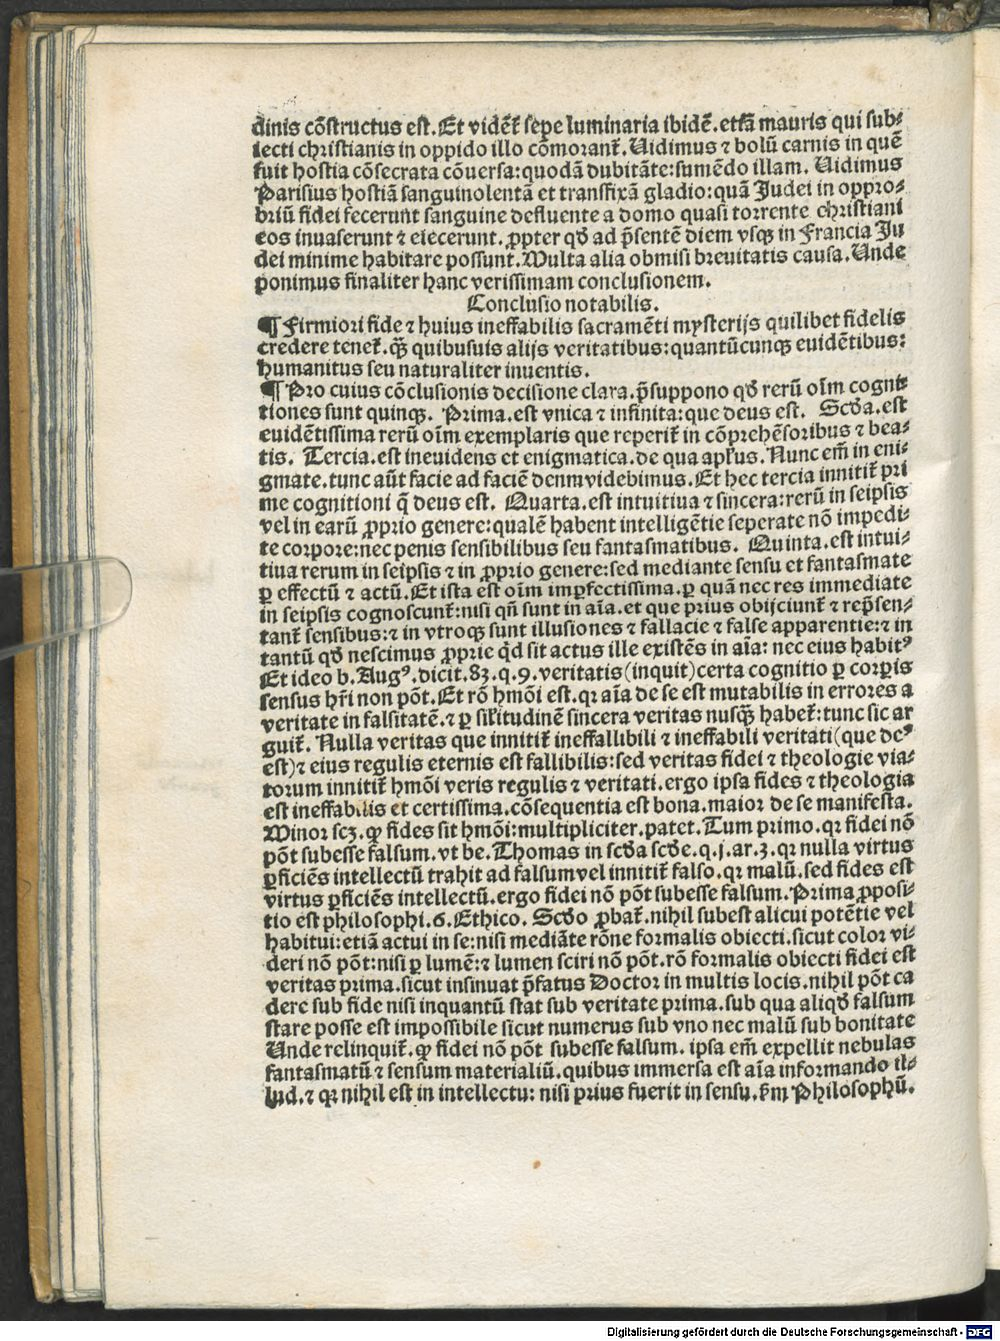 dinis cõstructus est. Et vidẽt᷑ sepe luminaria ibidẽ. etiã mauris qui sub⸗
iecti christianis in oppido illo cõmorant᷑. Uidimus ⁊ bolũ carnis in quẽ
fuit hostia cõsecrata cõuersa: quodã dubitãte: sumẽdo illam. Uidimus
Parisius hostiã sanguinolentã et transfixã gladio: quã Judei in oppro⸗
briũ fidei fecerunt sanguine defluente a domo quasi torrente christiani
eos inuaserunt ⁊ eiecerunt. ꝓpter qđ ad p̃sentẽ diem vsqꝫ in Francia Ju
dei minime habitare possunt. Multa alia obmisi breuitatis causa. Unde
ponimus finaliter hanc verissimam conclusionem.
Conclusio notabilis.
¶ Firmiori fide ⁊ huius ineffabilis sacramẽti mysterijs quilibet fidelis
credere tenet᷑. qꝫ̃ quibusuis alijs veritatibus: quantũcunqꝫ euidẽtibus:
humanitus seu naturaliter inuentis.
¶ Pro cuius cõclusionis decisione clara. p̃suppono qđ rerũ oĩm cogni⸗
tiones sunt quinqꝫ. Prima. est vnica ⁊ infinita: que deus est. Scđa. est
euidẽtissima rerũ oĩm exemplaris que reperit᷑ in cõprehẽsoribus ⁊ bea⸗
tis. Tercia. est ineuidens et enigmatica. de qua apl̃us. Nunc em̃ in eni⸗
gmate. tunc aũt facie ad faciẽ deum videbimus. Et hec tercia innitit᷑ pri
me cognitioni q̃ deus est. Quarta. est intuitiua ⁊ sincera: rerũ in seipsis
vel in earũ ꝓprio genere: qualẽ habent intelligẽtie seperate nõ impedi⸗
te corpore: nec penis sensibilibus seu fantasmatibus. Quinta. est intui⸗
tiua rerum in seipsis ⁊ in ꝓprio genere: sed mediante sensu et fantasmate
ꝑ effectũ ⁊ actũ. Et ista est oĩm imꝑfectissima. ꝑ quã nec res immediate
in seipsis cognoscunt᷑: nisi qñ sunt in aĩa. et que prius obijciunt᷑ ⁊ rep̃sen⸗
tant᷑ sensibus: ⁊ in vtroqꝫ sunt illusiones ⁊ fallacie ⁊ false apparentie: ⁊ in
tantũ qđ nescimus ꝓprie qđ sit actus ille existẽs in aĩa: nec eius habitꝰ
Et ideo b. Augꝰ. dicit. 83. q. 9. veritatis (inquit) certa cognitio ꝑ corꝑis
sensus hr̃i non põt. Et rõ hmõi est. qꝛ aĩa de se est mutabilis in errores a
veritate in falsitatẽ. ⁊ ꝑ sil̃itudinẽ sincera veritas nusqꝫ̃ habet᷑: tunc sic ar
guit᷑. Nulla veritas que innitit᷑ ineffallibili ⁊ ineffabili veritati (que deꝰ
est) ⁊ eius regulis eternis est fallibilis: sed veritas fidei ⁊ theologie via⸗
torum innitit᷑ hmõi veris regulis ⁊ veritati. ergo ipsa fides ⁊ theologia
est ineffabilis et certissima. cõsequentia est bona. maior de se manifesta.
Minor scꝫ. ꝙ fides sit hmõi: multipliciter. patet. Tum primo. qꝛ fidei nõ
põt subesse falsum. vt be. Thomas in scđa scđe. q. j. ar. 3. qꝛ nulla virtus
ꝑficiẽs intellectũ trahit ad falsum vel innitit᷑ falso. qꝛ malũ. sed fides est
virtus ꝑficiẽs intellectũ. ergo fidei nõ põt subesse falsum. Prima ꝓposi⸗
tio est philosophi. 6. Ethico. Scđo ꝓbat᷑. nihil subest alicui potẽtie vel
habitui: etiã actui in se: nisi mediãte rõne formalis obiecti. sicut color vi⸗
deri nõ põt: nisi ꝑ lumẽ: ⁊ lumen sciri nõ põt. rõ formalis obiecti fidei est
veritas prima. sicut insinuat p̃fatus Doctor in multis locis. nihil põt ca
dere sub fide nisi inquantũ stat sub veritate prima. sub qua aliqđ falsum
stare posse est impossibile sicut numerus sub vno nec malũ sub bonitate
Unde relinquit᷑. ꝙ fidei nõ põt subesse falsum. ipsa em̃ expellit nebulas
fantasmatũ ⁊ sensum materialiũ. quibus immersa est aĩa informando il⸗
lud. ⁊ qꝛ nihil est in intellectu: nisi prius fuerit in sensu. ẜm Philosophũ.
Digitalisierung gefördert durch die Deutsche Forschungsgemeinschaft - DFG